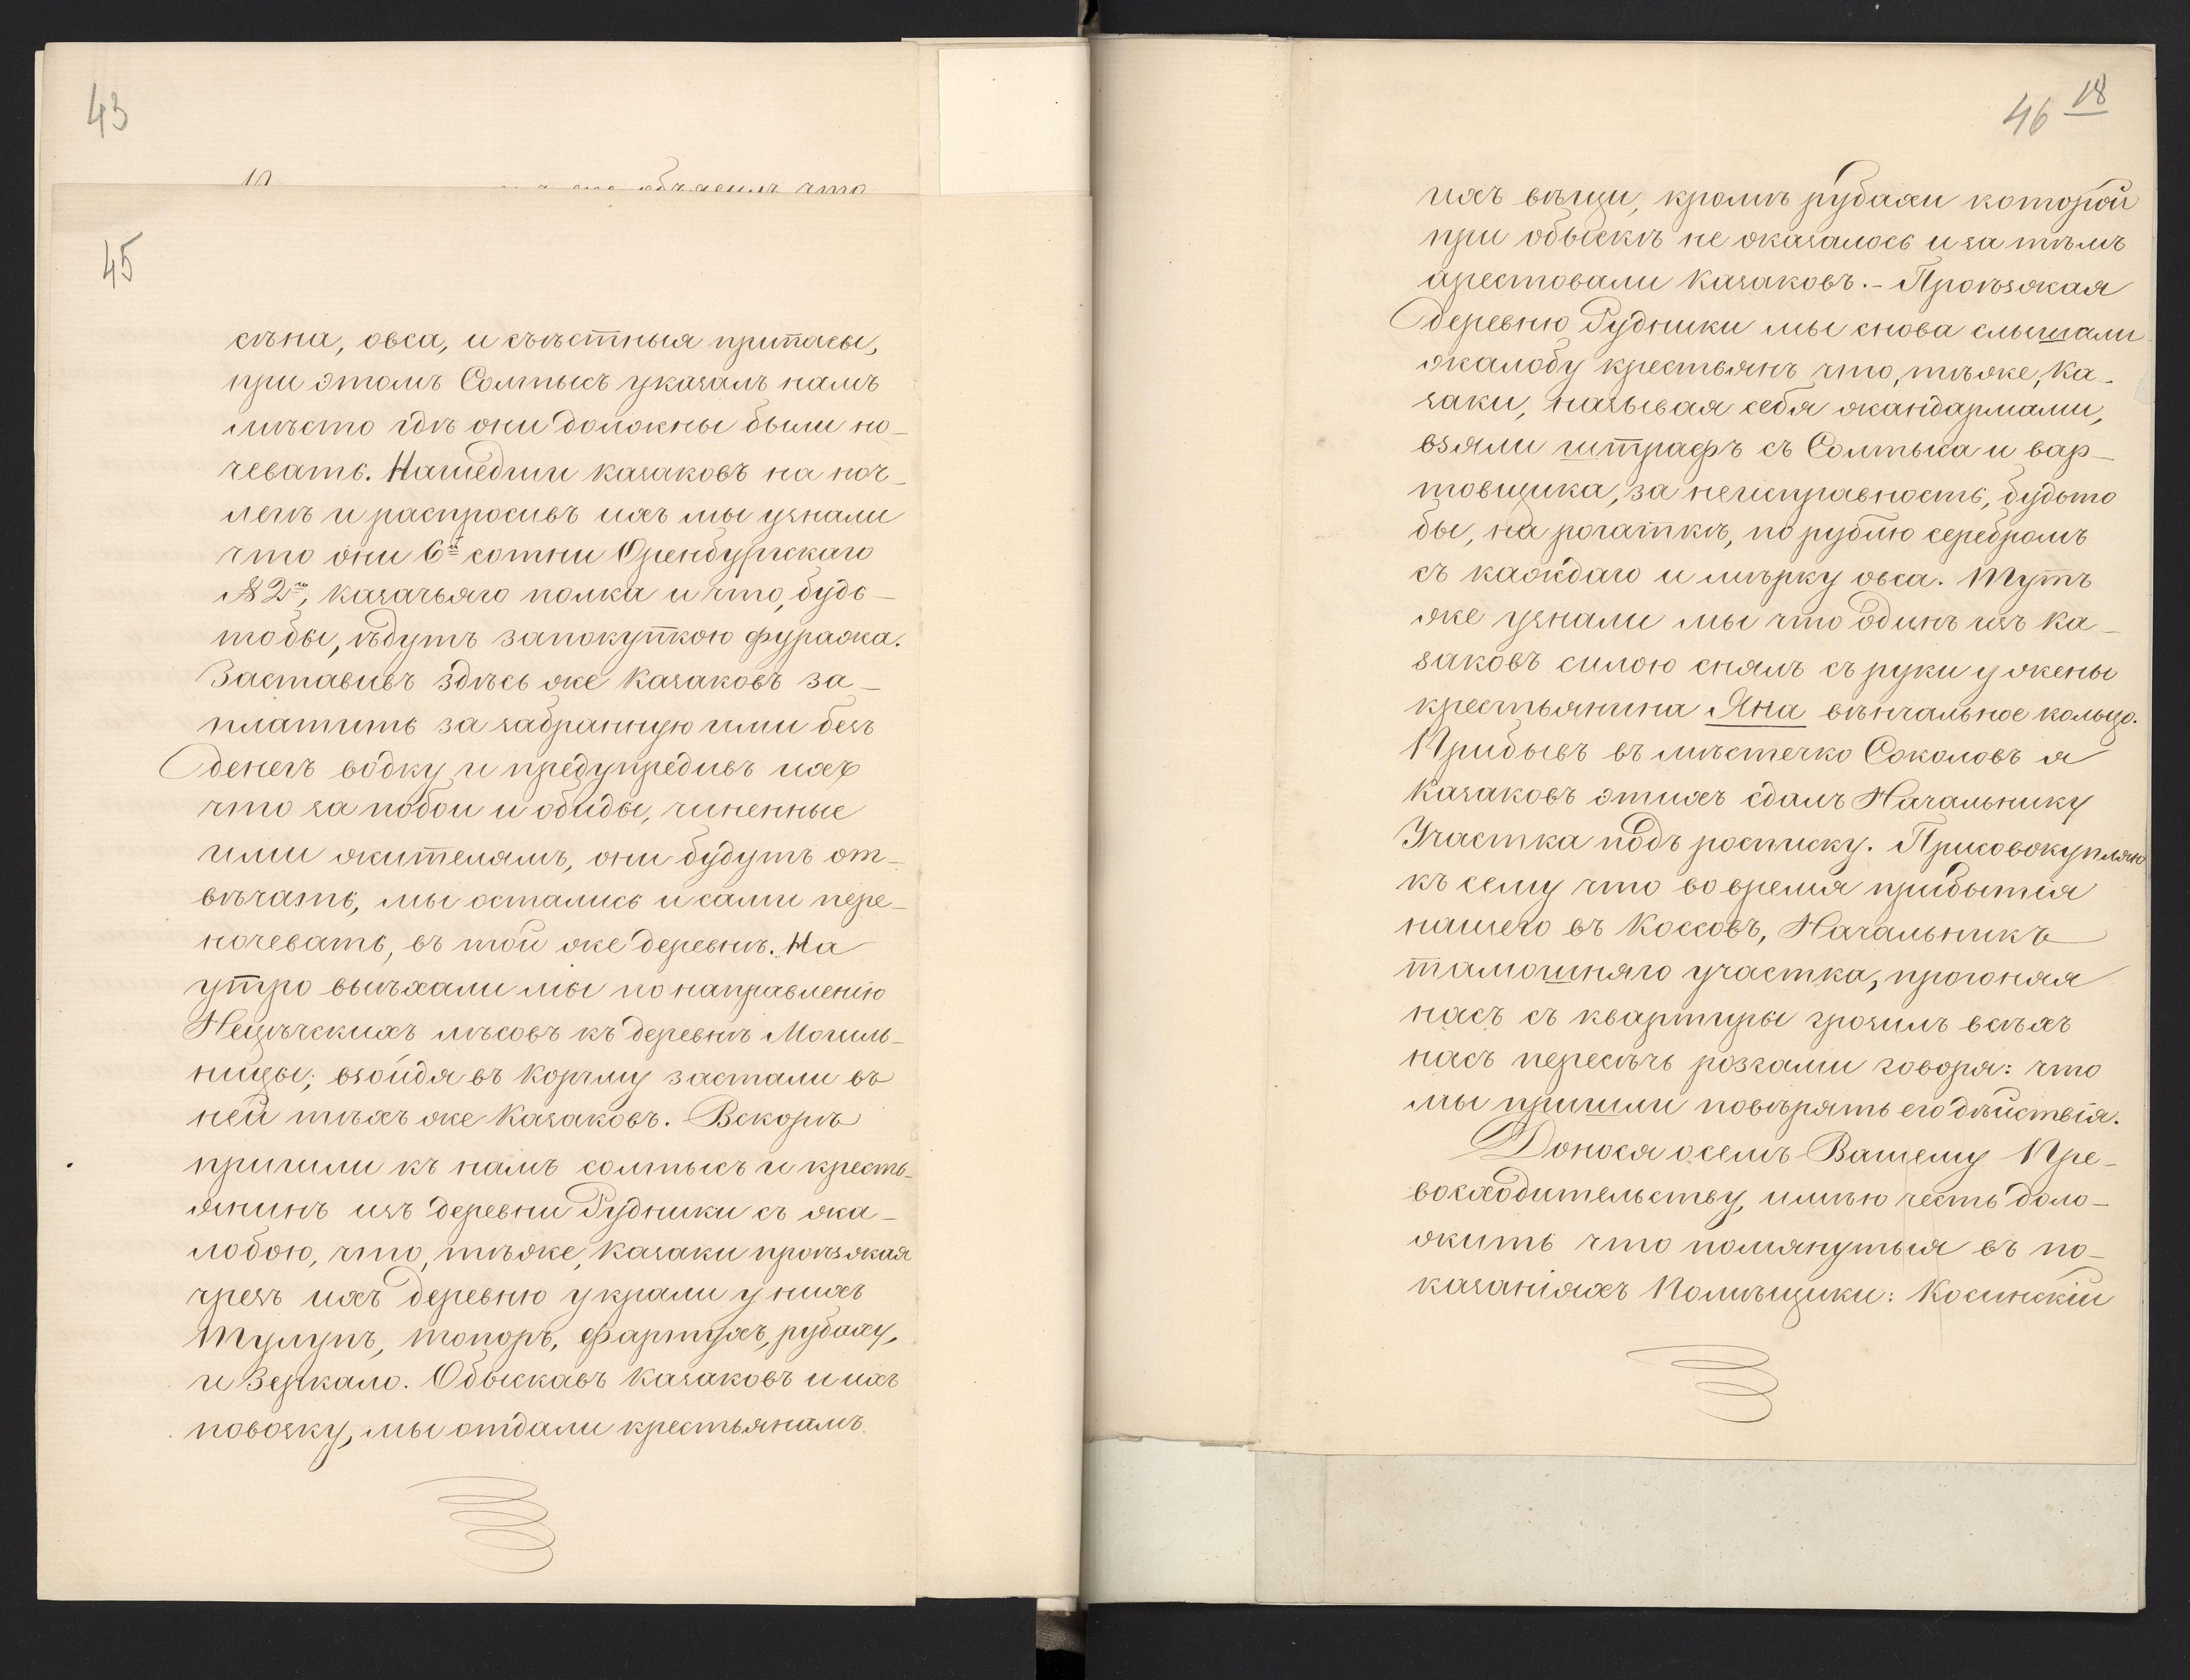 43
объяснил что
45
сѣна, овса, и съѣстныя припасы,
при этомъ Солтысъ указалъ намъ
мѣсто гдѣ они должны были но-
чевать. Нашедши казаковъ на ноч-
легѣ и распросивъ ихъ мы узнали
что они 6й сотни Оренбургскаго
№ 2го, казачьяго полка и что, будь-
тобы, ѣдутъ запокупкою фуража.
Заставивъ здѣсь же Казаковъ за-
платить за забранную ими безъ
денегъ водку и предупредивъ ихъ
что за побои и обиды, чиненные
ими жителямъ, они будутъ от-
вѣчать, мы остались и сами пере-
ночевать, въ той же деревнѣ. На
утро выѣхали мы по направленію
Нецѣчскихъ лѣсовъ къ деревнѣ Могиль-
ницы; взойдя въ Корчму застали въ
ней тѣхъ же Казаковъ. Вскорѣ
пришли къ намъ солтысъ и кресть-
янинъ изъ деревни Рудники съ жа-
лобою, что, тѣже, Казаки проѣзжая
чрезъ ихъ деревню украли у нихъ
Тулупъ, топоръ, фартухъ, рубаху,
и Зеркало. Обыскавъ Казаковъ и ихъ
повозку, мы отдали крестьянамъ
46 18
ихъ вѣщи, кромѣ рубахи которой
при обыскѣ не оказалось и за тѣмъ
арестовали Казаковъ.- Проѣзжая
деревню Рудники мы снова слышали
жалобу крестьянъ что, тѣже, Ка-
заки, называя себя жандармами,
взяли штрафъ съ Солтыса и вар-
товщика, за неисправность, будьто
бы, на рогаткѣ, по рублю серебромъ
съ каждаго и мѣрку овса. Тутъ
же узнали мы что одинъ изъ Ка-
заковъ силою снялъ съ руки у жены
крестьянина Яна вѣнчальное кольцо.
Прибывъ въ мѣстечко Соколовъ я
Казаковъ этихъ сдалъ Начальнику
Участка подъ росписку. Присовокупляю
къ сему что во время прибытія
нашего въ Коссовъ, Начальникъ
тамошняго участка, прогоняя
насъ съ квартиры грозилъ всѣхъ
насъ пересѣчь розгами говоря: что
мы пришли повѣрять его дѣйствія.
Донося осемъ Вашему Пре-
восходительству, имѣю честь доло-
жить что помянутыя въ по-
казаніяхъ Помѣщики: Косинскій